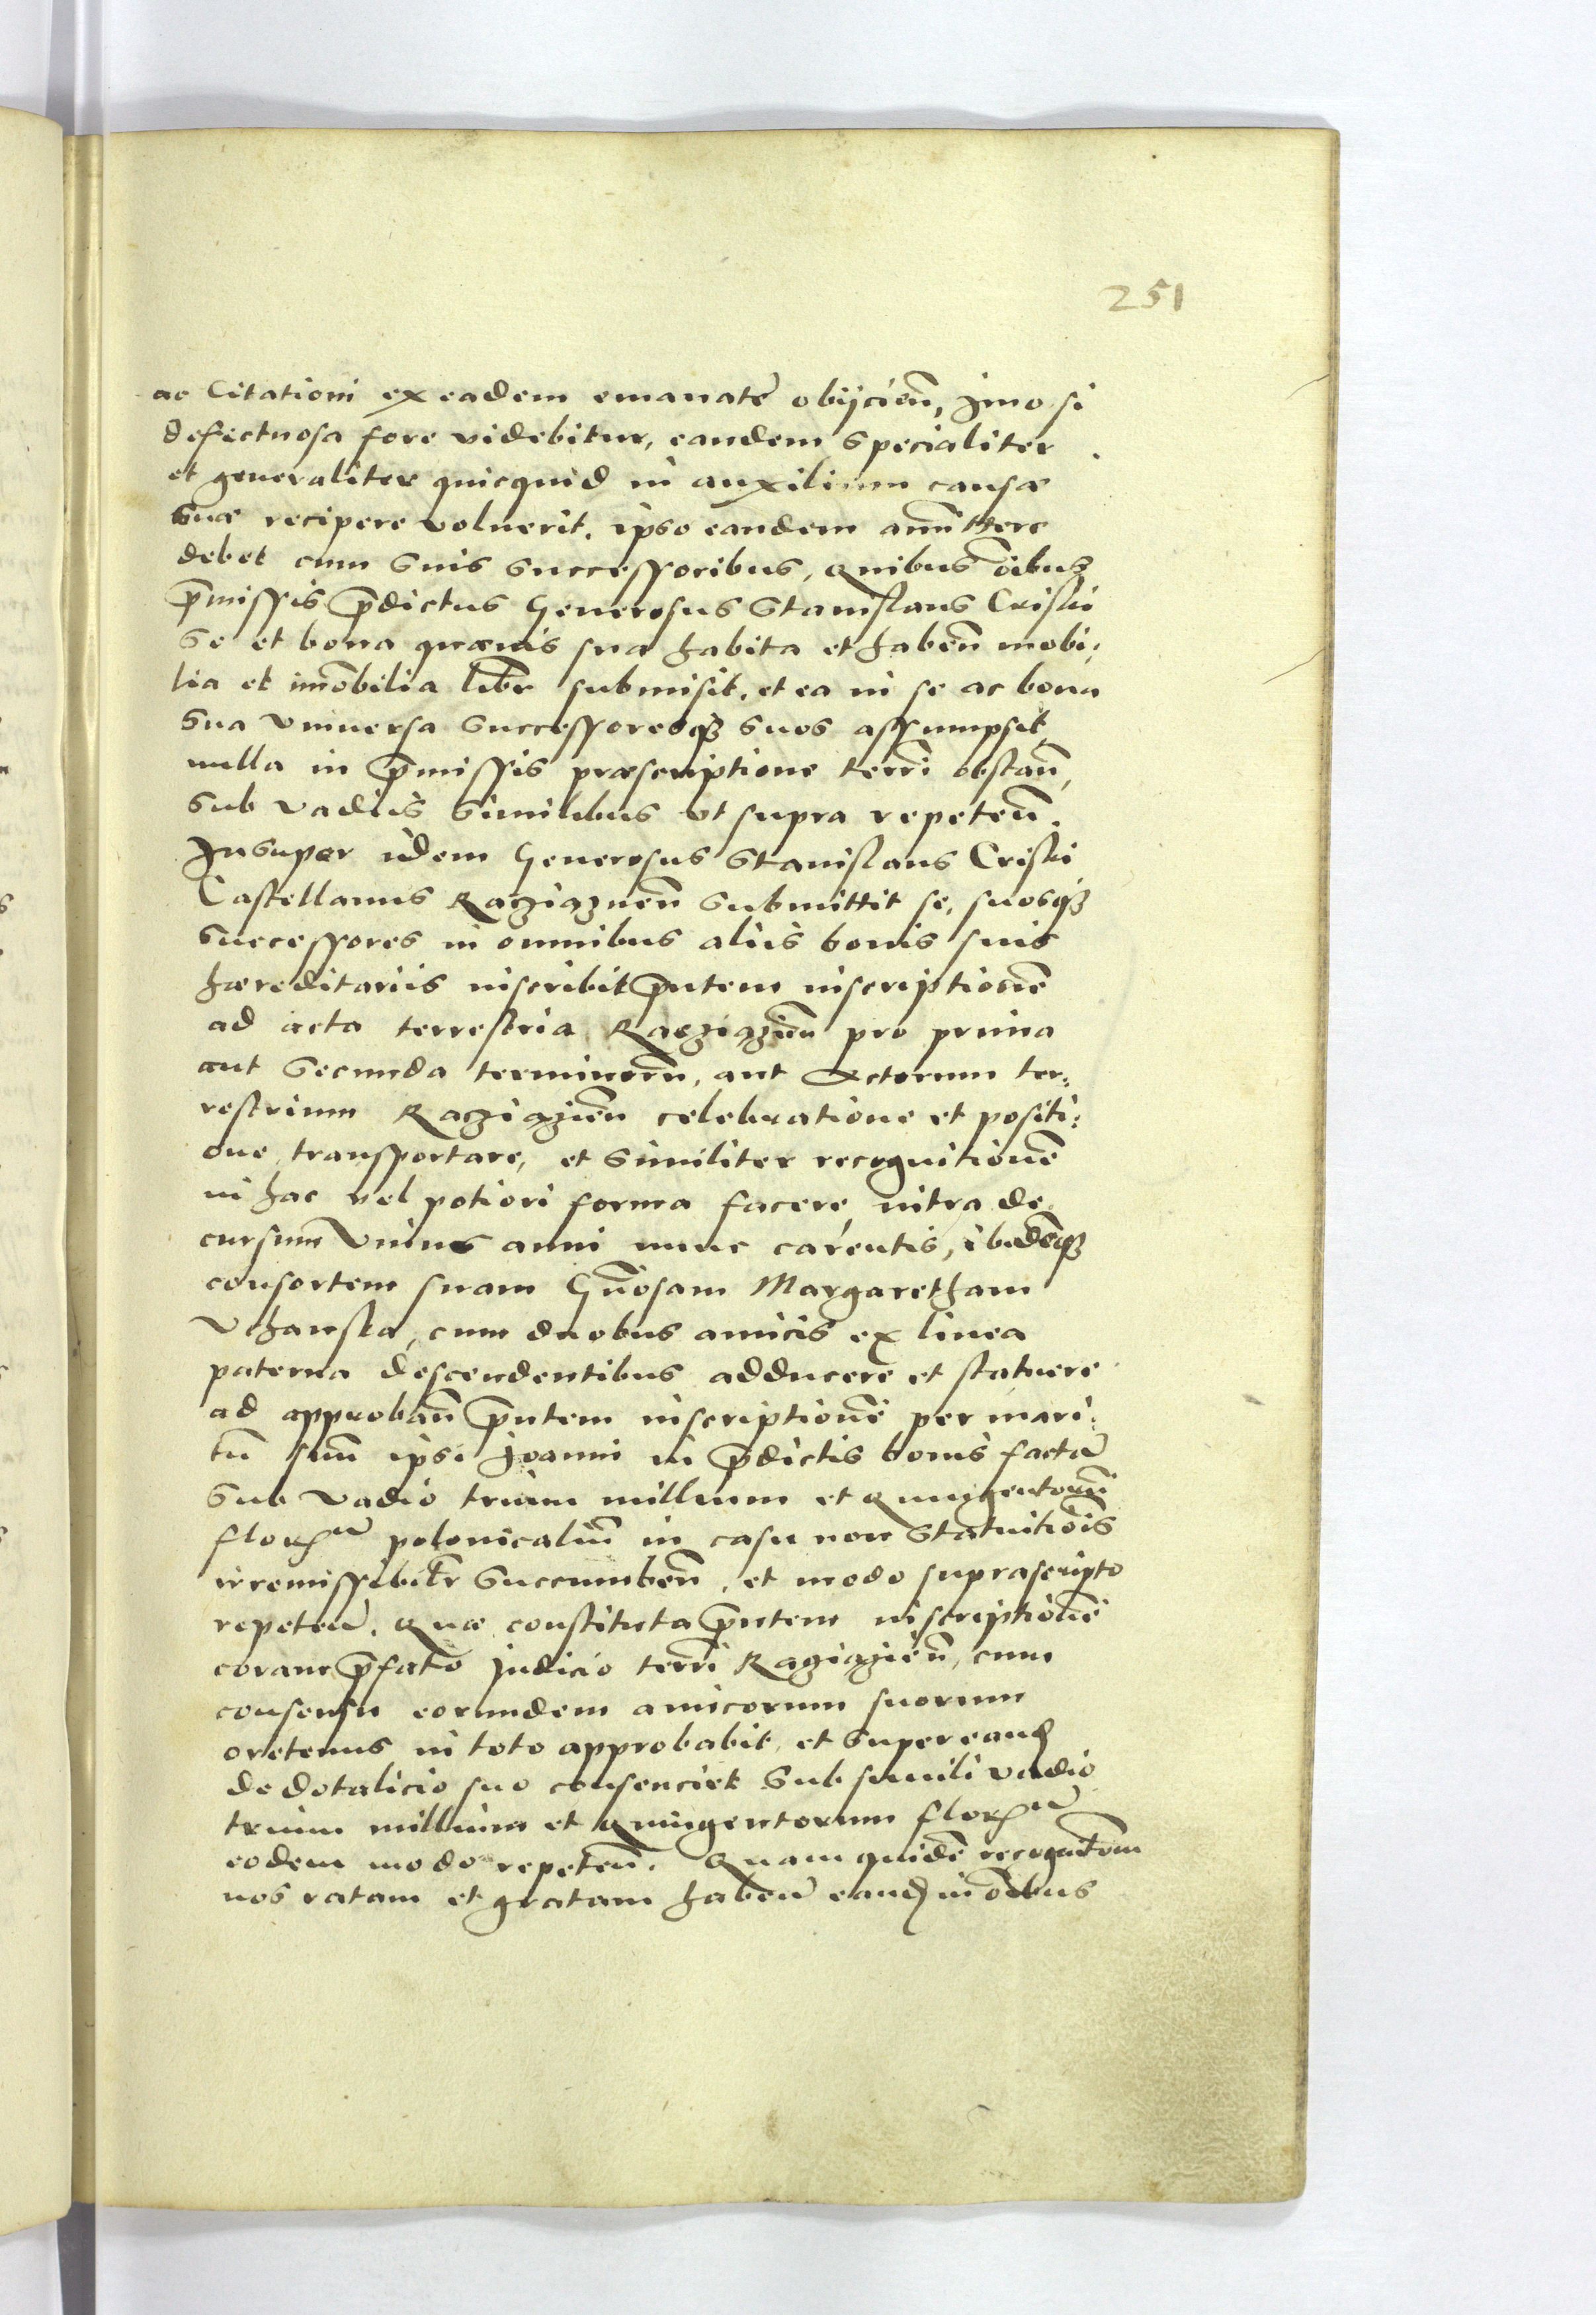 251
ac Citationi ex eadem emanatē obijcieñ, Imo si
defectuosa fore videbitur, eandem specialiter
et generaliter quicquid in auxilium causæ
suæ recipere voluerit, ipso eandem amittere
debet cum suis successoribus, Quibus oībus
p̄missis p̄dictus Generosus Stanislaus Criski
se et bona quævis sua habita et habeñ mobi:
lia et imōbilia libr̄e submisit, et ea in se ac bona
sua Vniuersa successoresq₃ suos assumpsit,
nulla in p̄missis præscriptione terrī obstañ,
sub vadiis similibus vt supra repeteñ.
Insuper idem Generosus Stanislaus Criski
Castellanus Raczigzneñ submittit se, suosq₃
successores in omnibus aliis bonis suis
hæreditariis inscribit p̄ntem inscriptionē
ad acta terrestria Raczigzieñ pro prima
aut secunda terminorū, aut Actorum ter:
restrium Raczigzieñ celebratione et positi:
one transportare, et similiter recognitionē
in hac vel potiori forma facere, intra de
cursum Vnius anni nunc carentis, ibidēq₃
consortem suam Gn̄osam Margaretham
Vchanska, cum duobus amicis ex linea
paterna descendentibus adducere et statuere
ad approbañ p̄ntem inscriptionē per mari:
tū suū ipsi Joanni in p̄dictis bonis factā
sub vadio trium millium et Quingentorū
florʳᵘ polonicaliū in casu non statuitiōis
irremissibilr̄ succumbeñ, et modo suprascripto
repeteñ. Quæ constituta p̄ntem inscriptionē
coram p̄fato Judicio terrī Ragigzieñ, cum
consensu eorundem amicorum suorum
oretenus in toto approbabit, et super eand
de dotalicio suo consenciet sub simili vadio
trium millium et Quingentorum florʳᵘ
eodem modo repeteñ. Quam quidē recognitōm
nos ratam et gratam habeñ eand in oībus